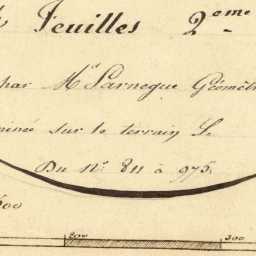 Feuilles 2ème
par Mr Larnegue Géomèt
minée sur le terrain L
Du No. 811 à 975.
500
200 300